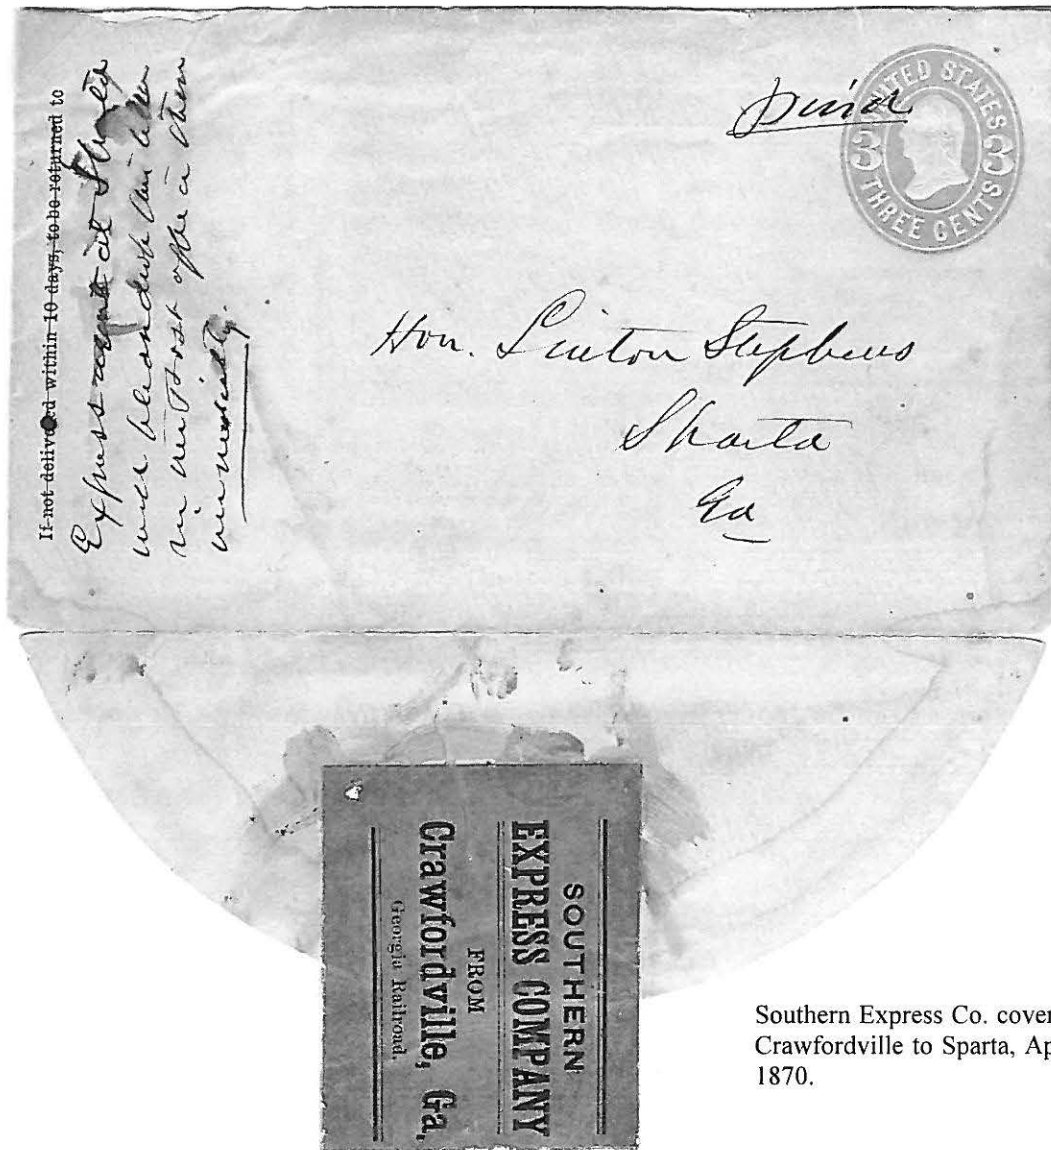 If not delivered within 10 days, to be returned to
Express agent at Sparta
will please drop this letter
in the Post office there
immediately.
Paid
UNITED STATES
3 3
THREE CENTS
Hon. Linton Stephens
Sparta
Ga
SOUTHERN
EXPRESS COMPANY
FROM
Crawfordville, Ga,
Georgia Railroad.
Southern Express Co. cover
Crawfordville to Sparta, Ap
1870.